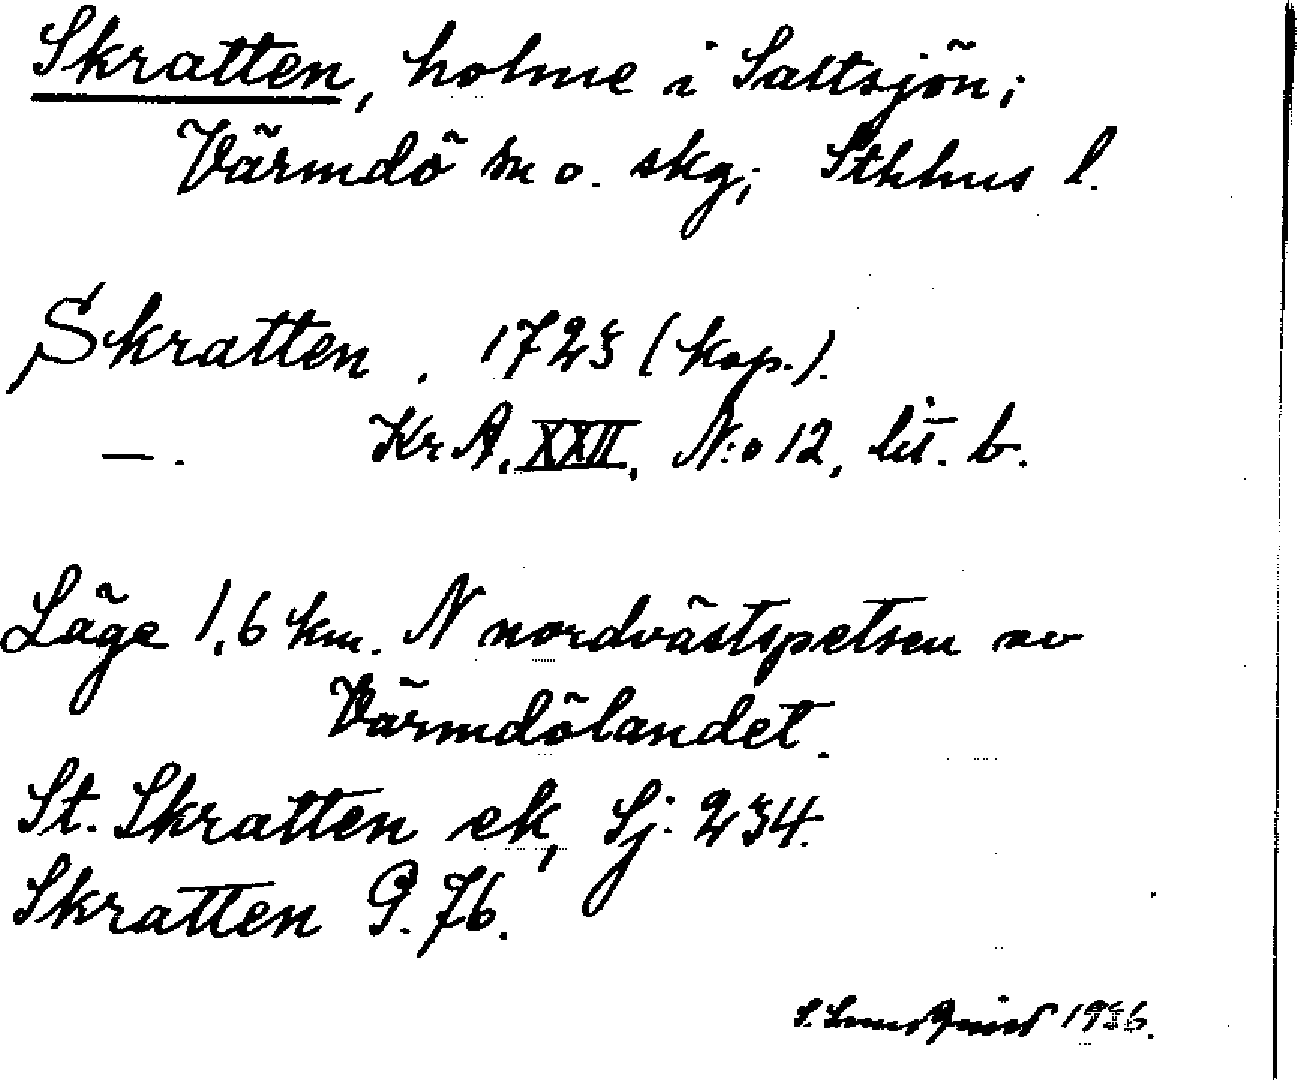 Skratten, holme i Saltsjön;
Värmdö sn o. skg; Sthhus l.
Skratten. 1723 (kop.).
—. KrA, XXII, N:o 12, lit. b.
Läge 1,6 km. N nordvästspetsen av
Värmdölandet.
St. Skratten ek, Sj. 234.
Skratten G. 76.
1936.